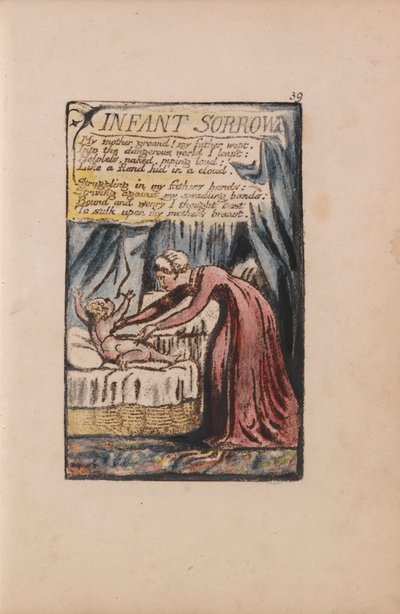 39
INFANT SORROW
My mother groand! my father wept.
Into the dangerous world I leapt:
Helpless, naked, piping loud:
Like a fiend hid in a cloud.
Struggling in my fathers hands:
Striving against my swadling bands:
Bound and weary I thought best
To sulk upon my mothers breast.